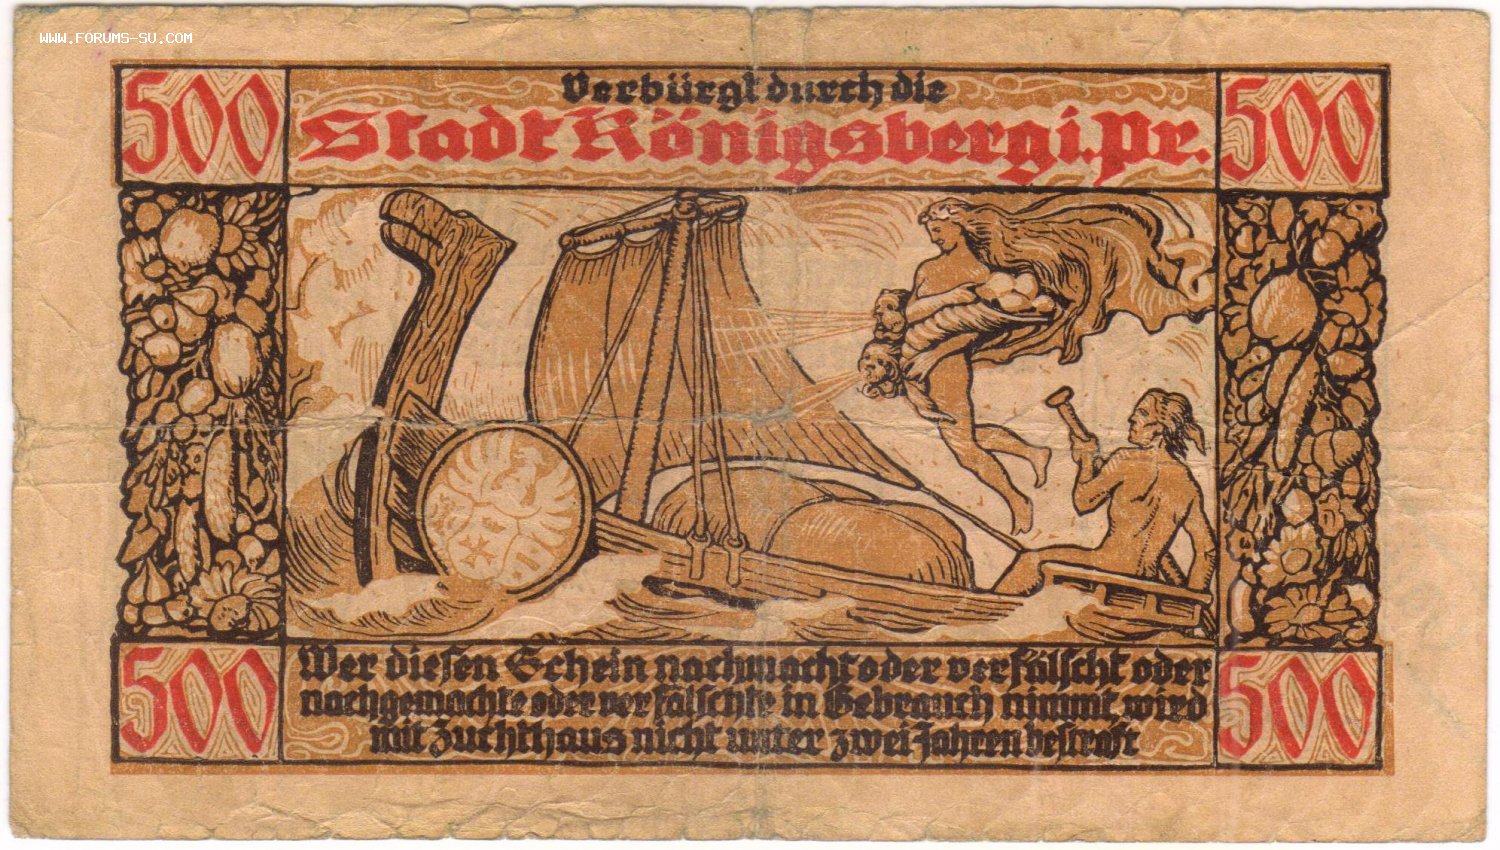 WWW.FORUMS-SU.COM
500 Verbürgt durch die 500
Stadt Königsberg i. Pr.
500 Wer diesen Schein nachmacht oder verfälscht oder 500
nachgemachte oder verfälschte in Gebrauch nimmt, wird
mit Zuchthaus nicht unter zwei Jahren bestraft